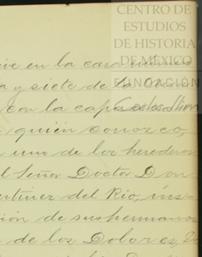 CENTRO DE
ESTUDIOS
DE HISTORIA
DE MÉXICO
FUNDACIÓN
en la casa
y siete de la
con la capa
quién conozco,
uno de los herederos
el Señor Doctor Don
del Rio, ins-
ción de sus hermanos
de los Dolores,